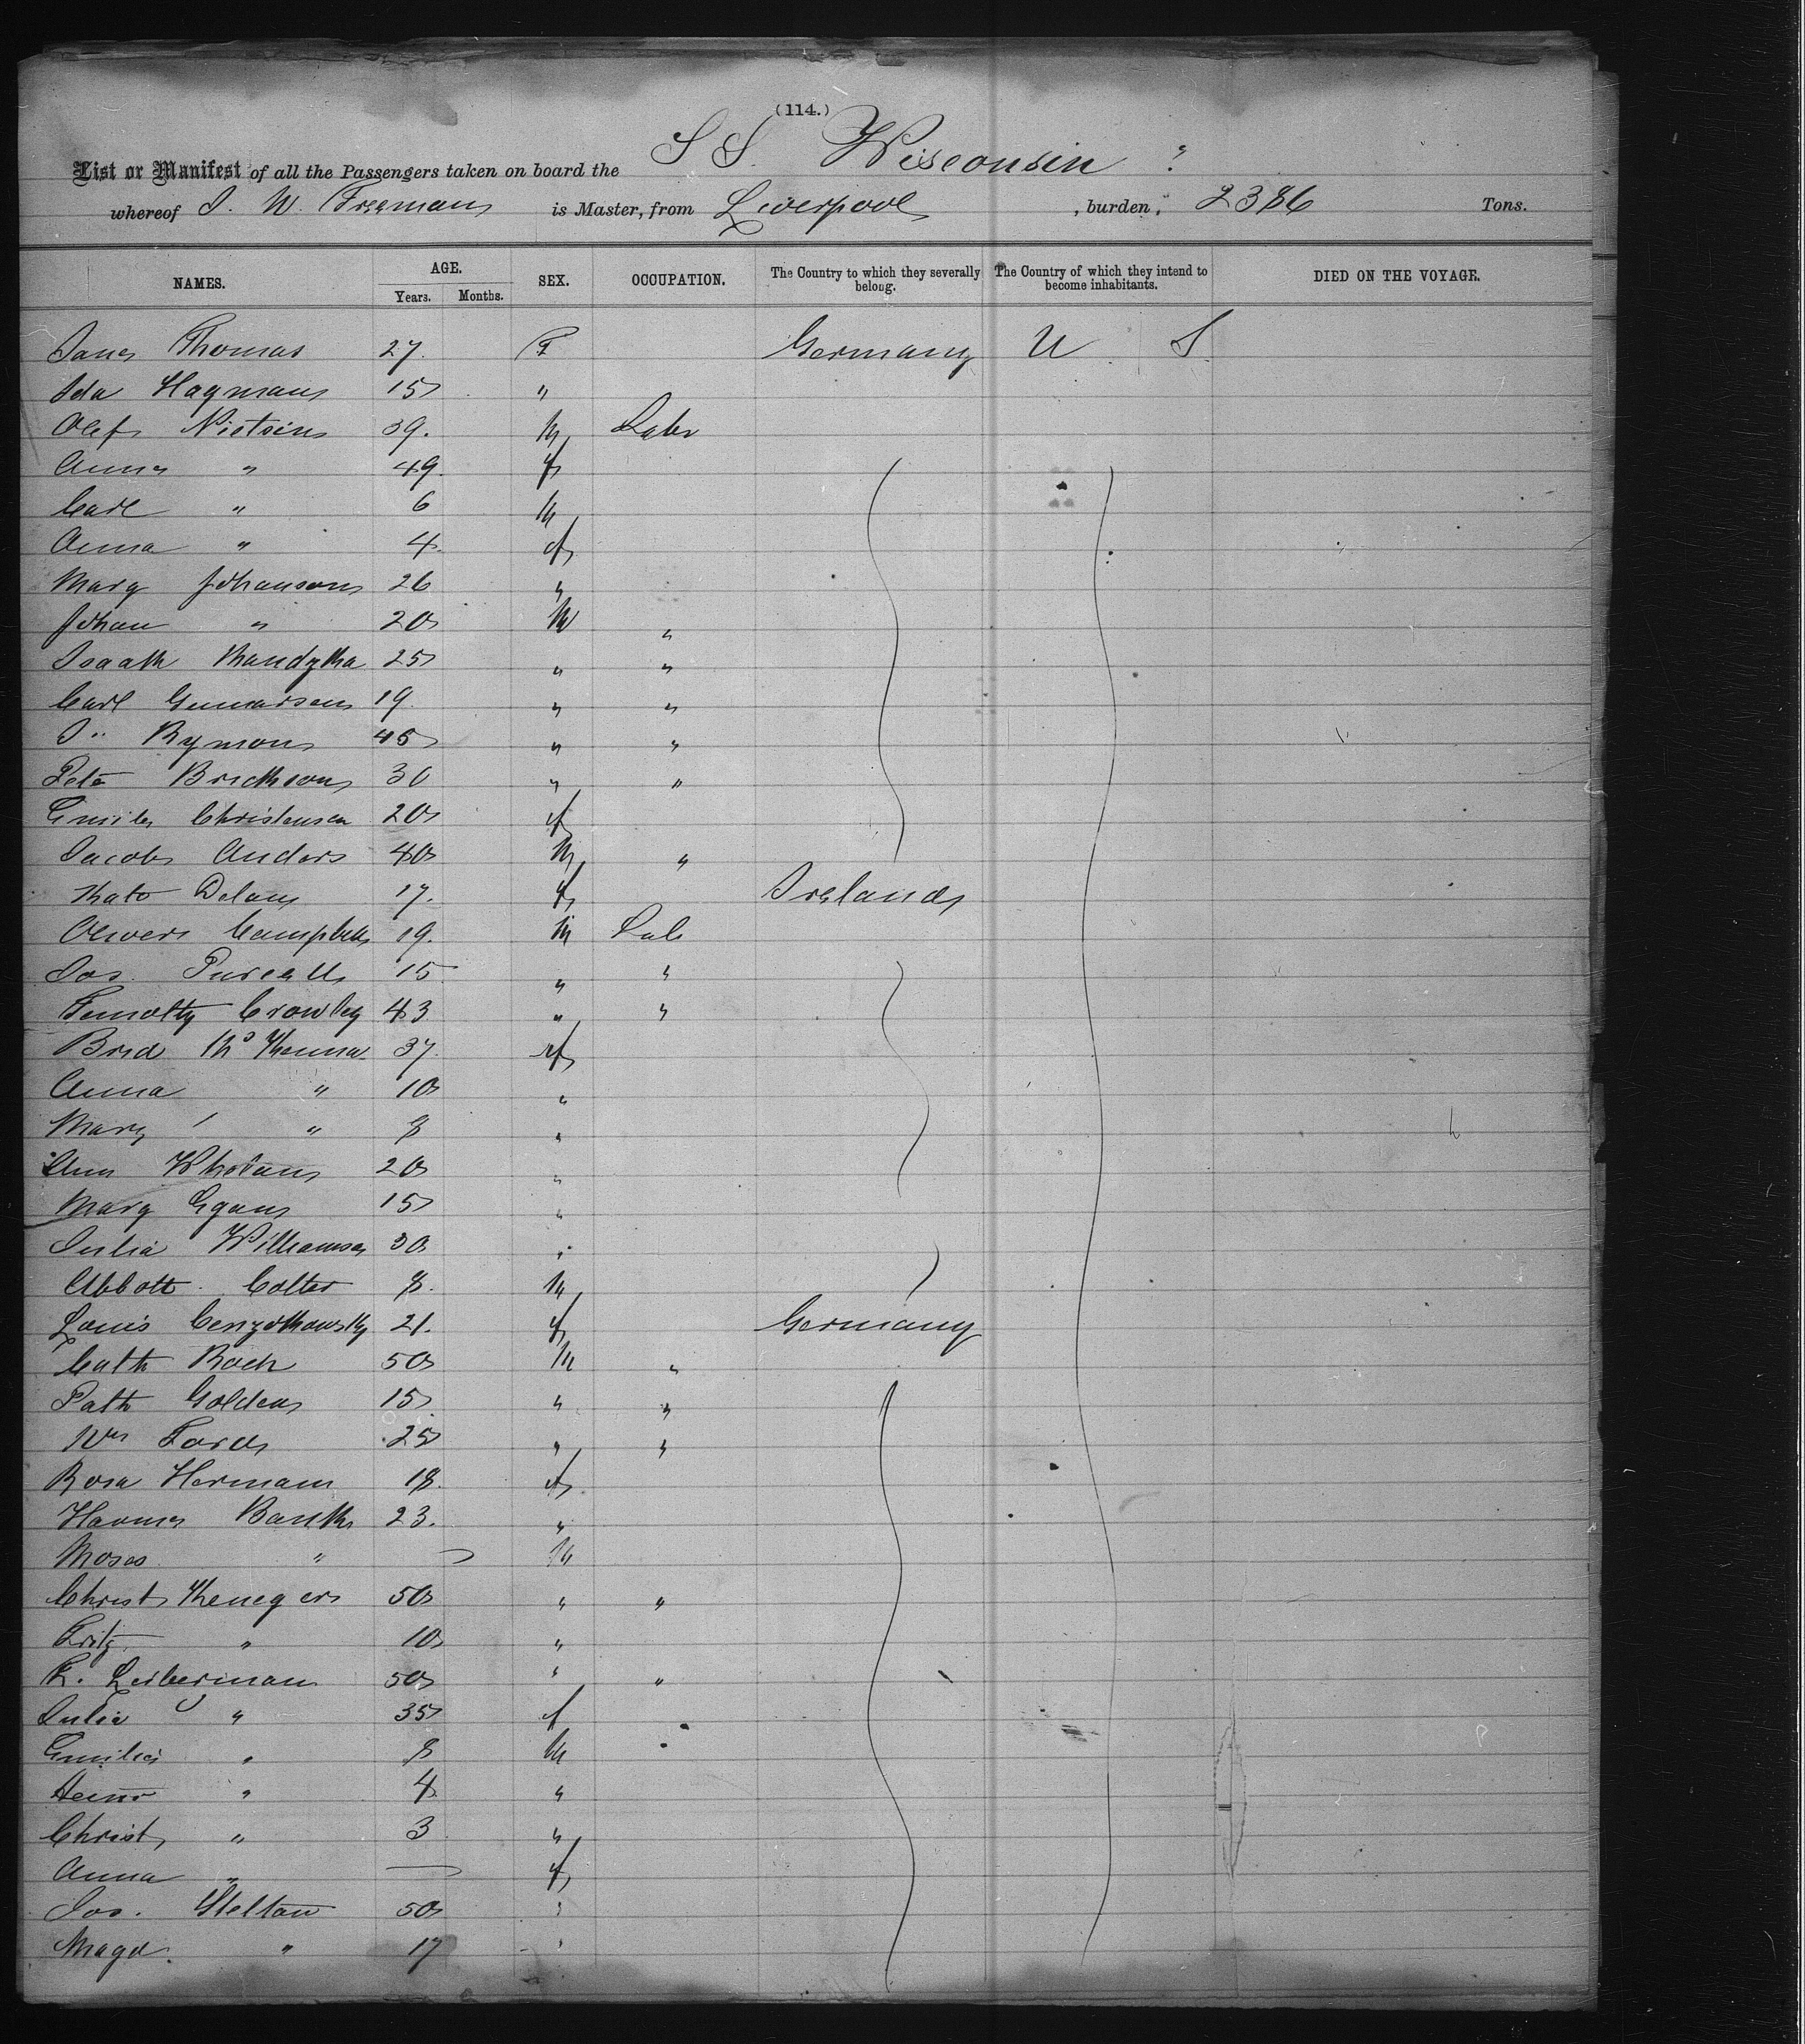 (114.)
List or Manifest of all the Passengers taken on board the S S. Wisconsin
whereof J. W. Freeman is Master, from Liverpool, burden, 2386 Tons.
NAMES. AGE. Years. Months. SEX. OCCUPATION. The Country to which they severally belong. The Country of which they intend to become inhabitants. DIED ON THE VOYAGE.
Thomas 27. F Germany U S.
Ida Hagman 15 "
Olof 39. M Labr
Anna " 49. f
Carl " 6 M
Anna " 4 f
Mary Johanson 26 "
Johan " 20 M "
25 " "
Carl Gunnarson 19. " "
Rymon 45 " "
Pete 30 " "
Emila Christensen 20 f
Jacob Anders 40 M "
Kate Dolan 17. f Ireland
Oliver Campbell 19. M Lab
Jos. Purcell 15 " "
Timothy Crowley 43 " "
Brid McKenna 37. f
Anna " 10 "
Mary " 8 "
Ann Whelan 20 "
Mary Egan 15 "
Julia Williamson 30 "
Abbott Colter 8. M
Louis 21. f Germany
Cath Roch 50 M "
Path Golden 15 " "
Wm Ford 25 " "
Rosa Hermann 18. f
Hanna Bank 23. "
Moses " — M
Christ 50 " "
Fritz " 10 "
Leiberman 50 " "
Julia " 35 f
Emilie " 8 M
" 4 "
Christ " 3 "
Anna " — f
Jos. Steltan 50 "
Magd. " 17 "